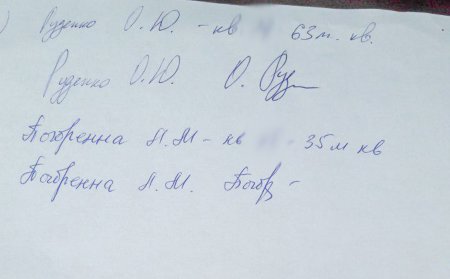 ) Руденко О.Ю. - кв 63 м. кв.
Руденко О.Ю. О. Руд
Погоренна Л.М - кв 35 м кв
Погоренна Л.М. Погор -